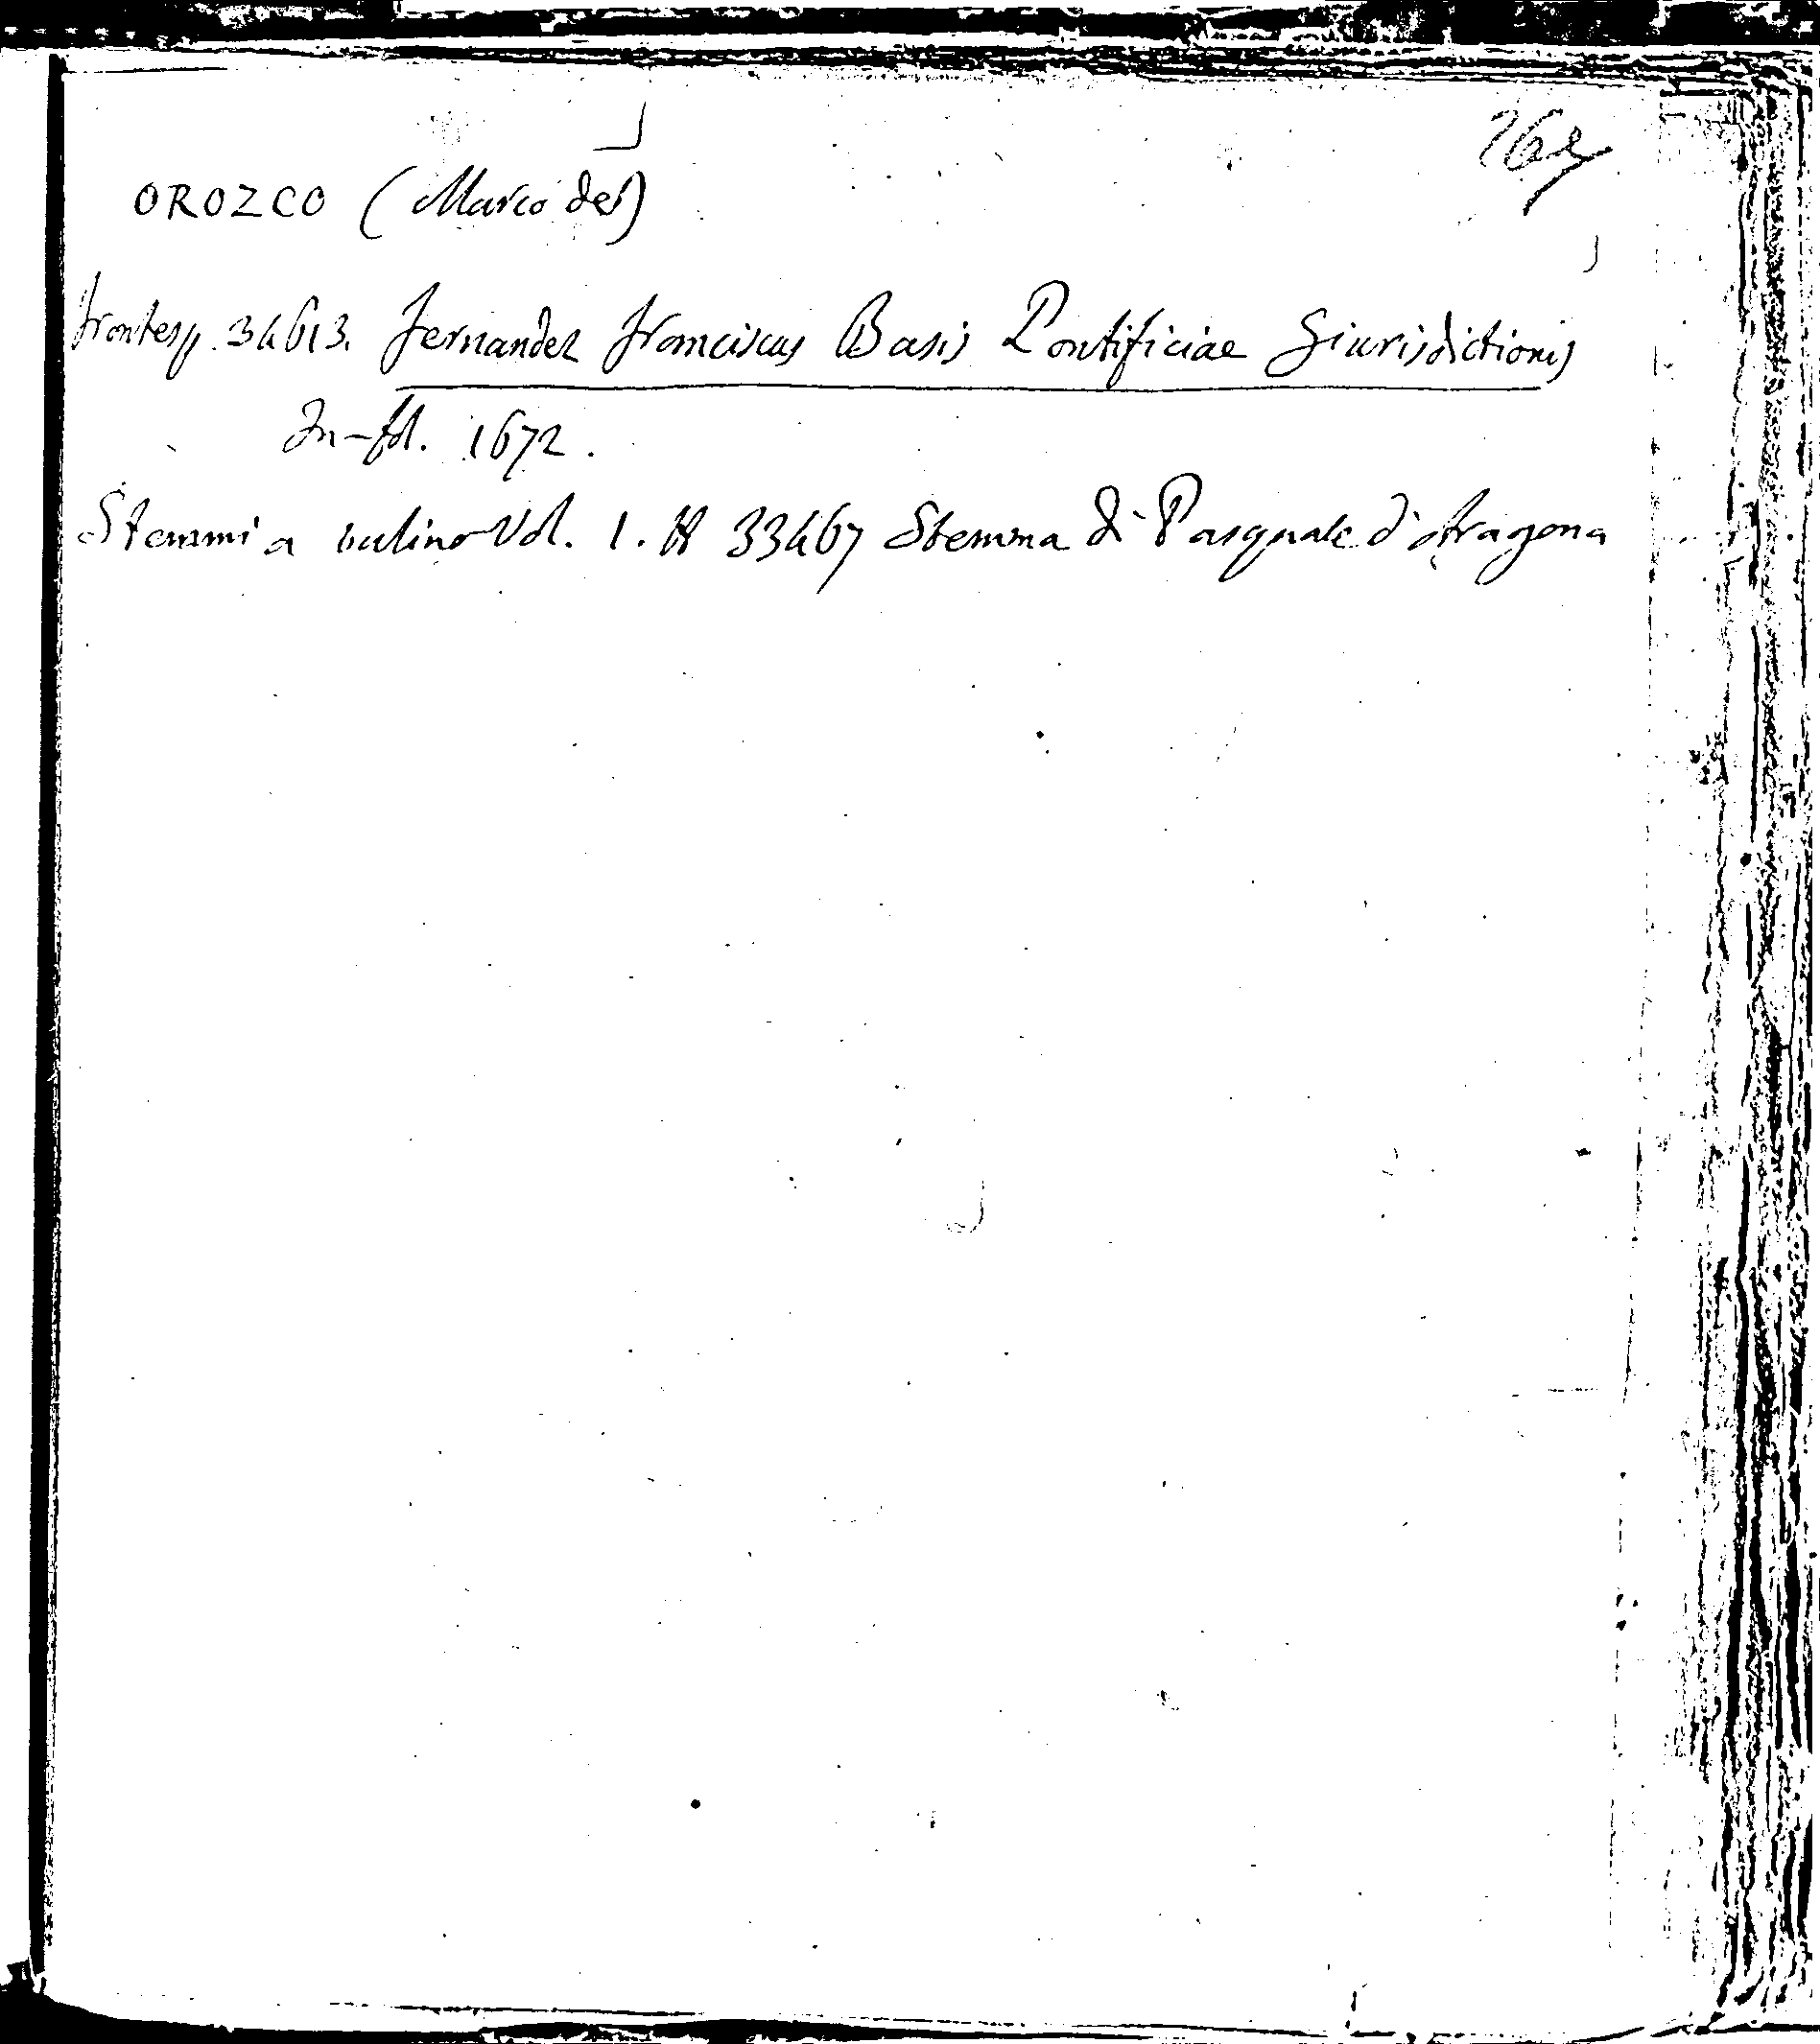 OROZCO (Marco de)
frontesp. 34613. Fernandez Franciscus Basis Pontificiae Giurisdictionis
In-fol. 1672.
Stemmi a bulino Vol. 1. H 33467 Stemma di Pasquale d'Aragona